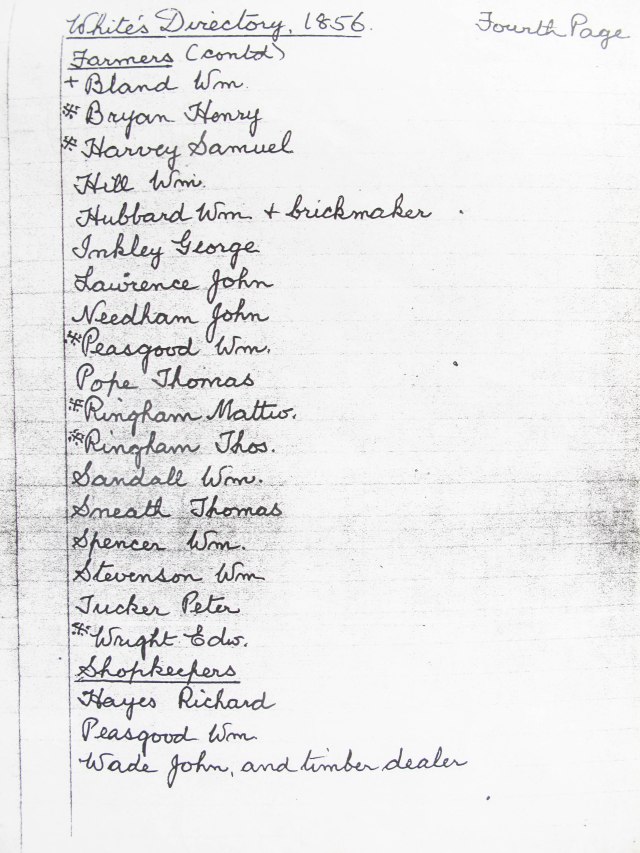 White's Directory, 1856. Fourth Page
Farmers (contd)
+ Bland Wm.
* Bryan Henry
* Harvey Samuel
Hill Wm.
Hubbard Wm + brickmaker
Inkley George
Lawrence John
Needham John
* Peasgood Wm.
Pope Thomas
* Ringham Mattw.
* Ringham Thos.
Sandall Wm.
Sneath Thomas
Spencer Wm.
Stevenson Wm
Tucker Peter
* Wright Edw.
Shopkeepers
Hayes Richard
Peasgood Wm.
Wade John, and timber dealer